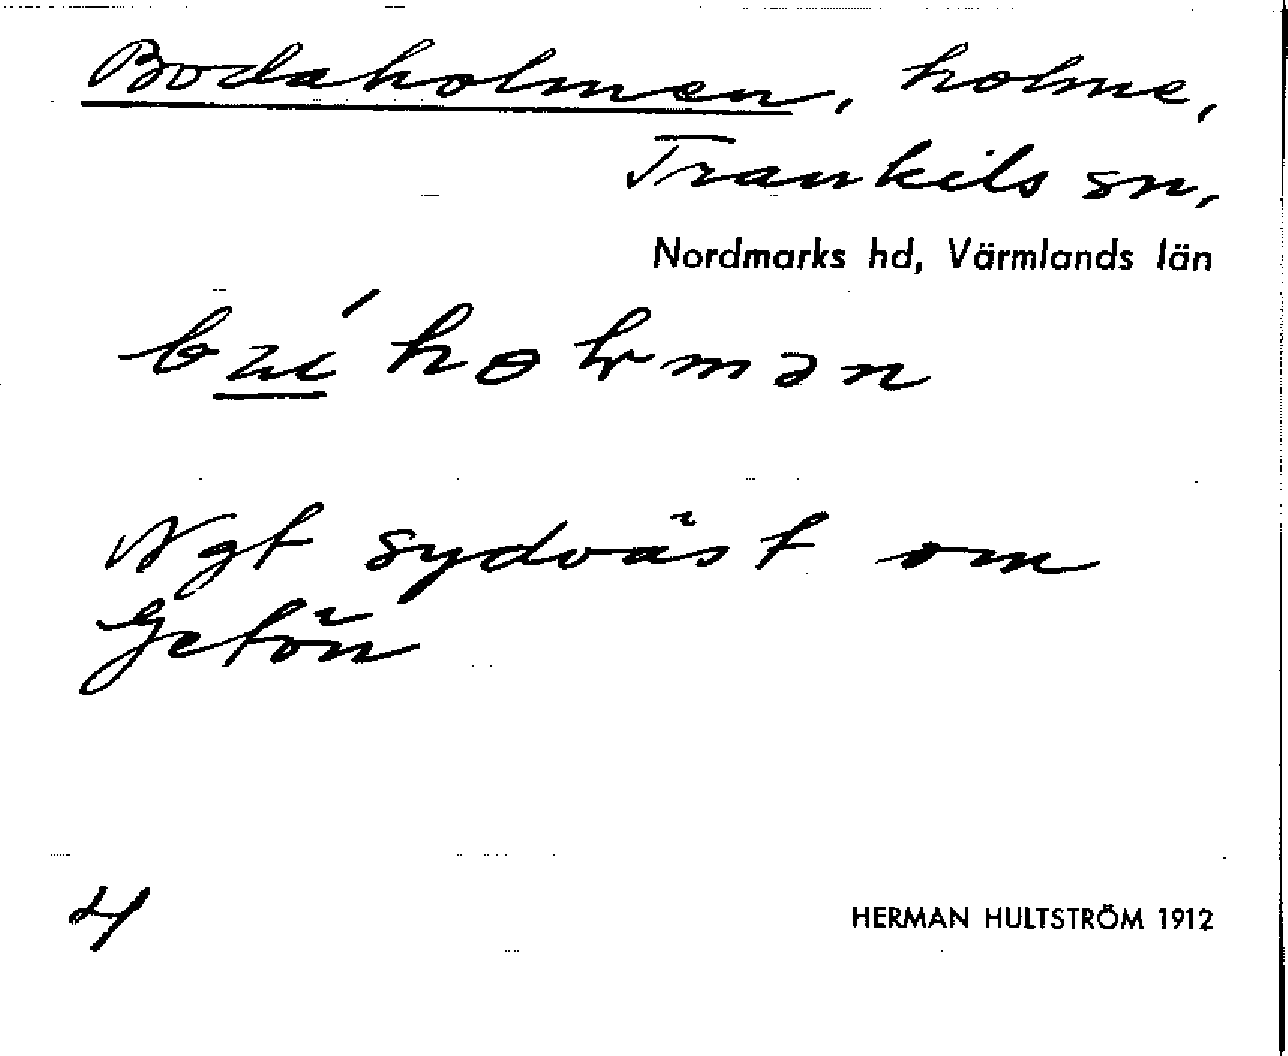 Bodaholmen, holme,
Trankils sn,
Nordmarks hd, Värmlands län
Ngt sydväst om
Getön
4
HERMAN HULTSTRÖM 1912